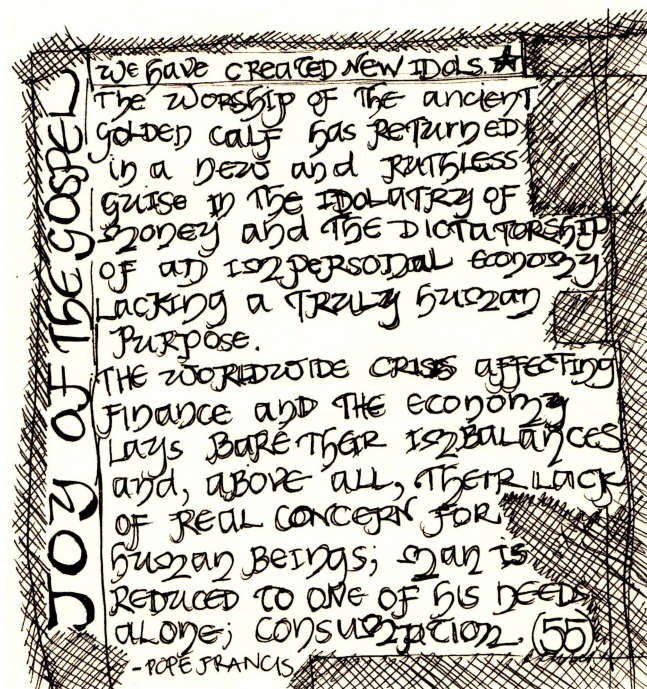 JOY OF THE GOSPEL
WE HAVE CREATED NEW IDOLS.
THE WORSHIP OF THE ANCIENT
GOLDEN CALF HAS RETURNED
IN A NEW AND RUTHLESS
GUISE IN THE IDOLATRY OF
MONEY AND THE DICTATORSHIP
OF AN IMPERSONAL ECONOMY
LACKING A TRULY HUMAN
PURPOSE.
THE WORLDWIDE CRISIS AFFECTING
FINANCE AND THE ECONOMY
LAYS BARE THEIR IMBALANCES
AND, ABOVE ALL, THEIR LACK
OF REAL CONCERN FOR
HUMAN BEINGS; MAN IS
REDUCED TO ONE OF HIS NEEDS
ALONE; CONSUMPTION. (55)
-POPE FRANCIS